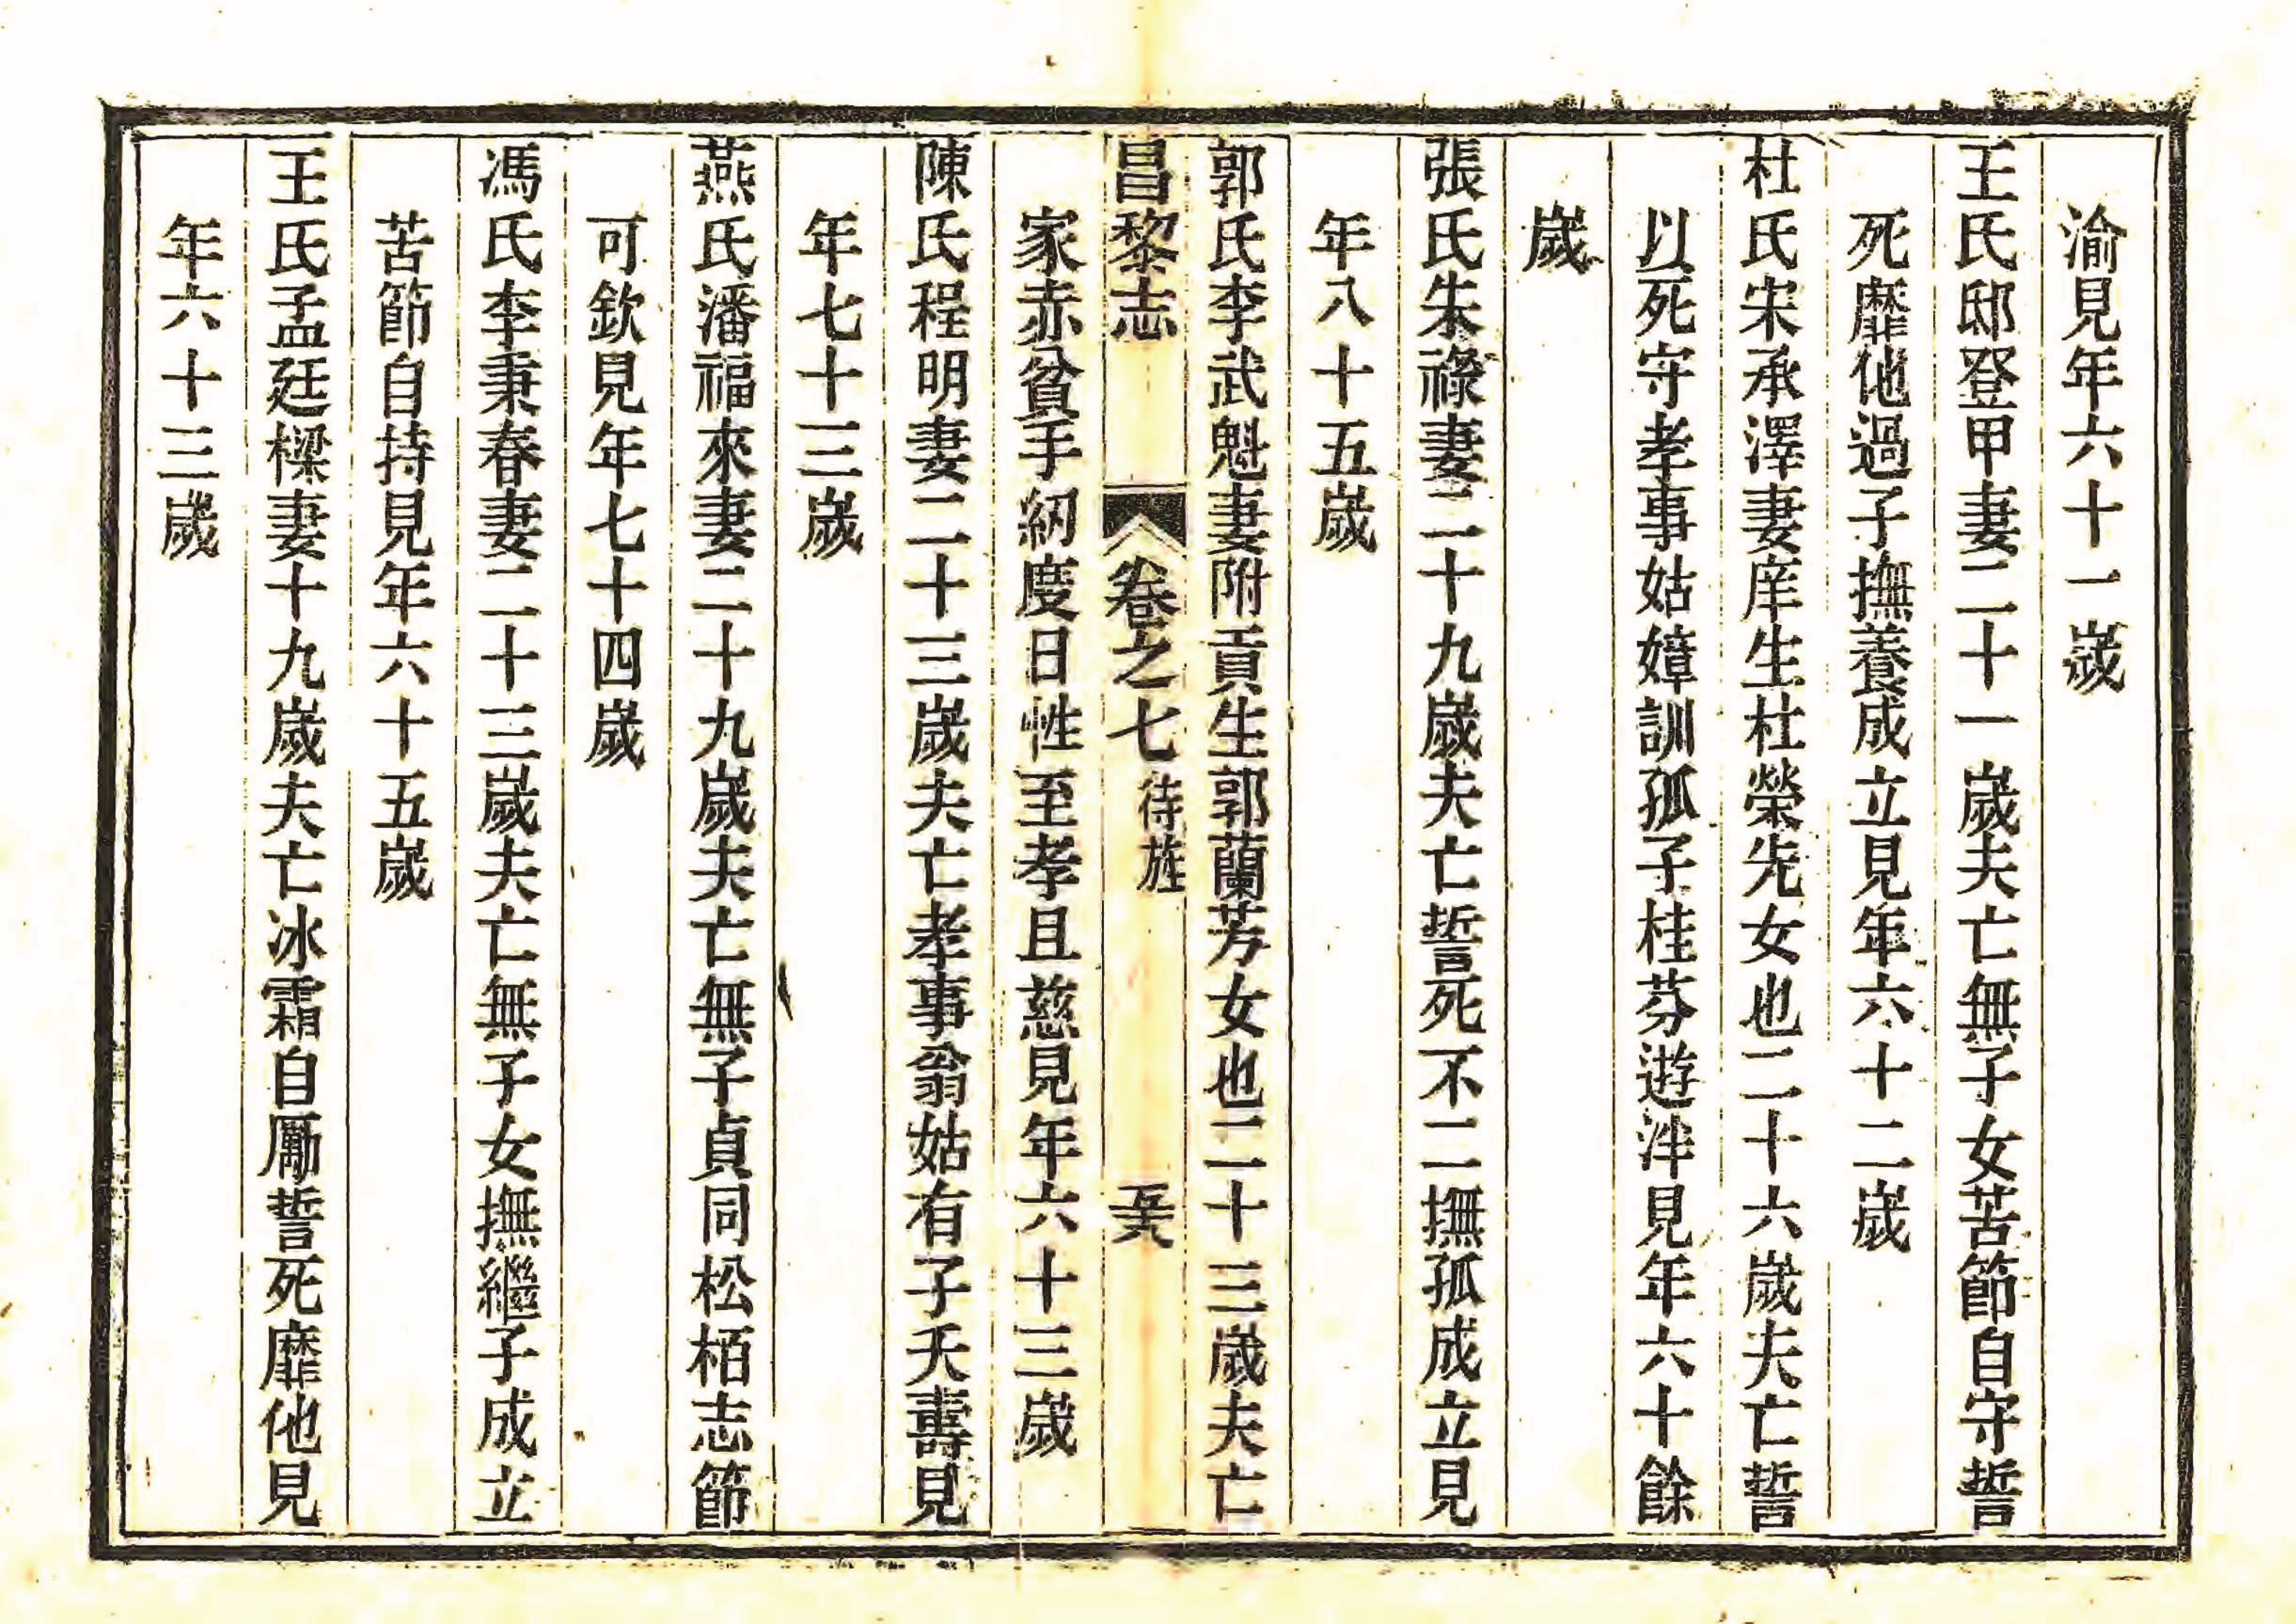 渝見年六十一歲
王氏邸登甲妻二十一歲夫亡無子女苦節自守誓
死靡他過子撫養成立見年六十二歲
杜氏宋承澤妻庠生杜榮先女也二十六歲夫亡誓
以死守孝事姑嫜訓孤子桂芬遊泮見年六十餘
歲
張氏朱祿妻二十九歲夫亡誓死不二撫孤成立見
年八十五歲
郭氏李武魁妻附貢生郭蘭芳女也二十三歲夫亡
昌黎志 卷之七 待旌 五六
家赤貧手紉度日性至孝且慈見年六十三歲
陳氏程明妻二十三歲夫亡孝事翁姑有子夭壽見
年七十三歲
燕氏潘福來妻二十九歲夫亡無子貞同松栢志節
可欽見年七十四歲
馮氏李秉春妻二十三歲夫亡無子女撫繼子成立
苦節自持見年六十五歲
王氏孟廷樑妻十九歲夫亡冰霜自勵誓死靡他見
年六十三歲